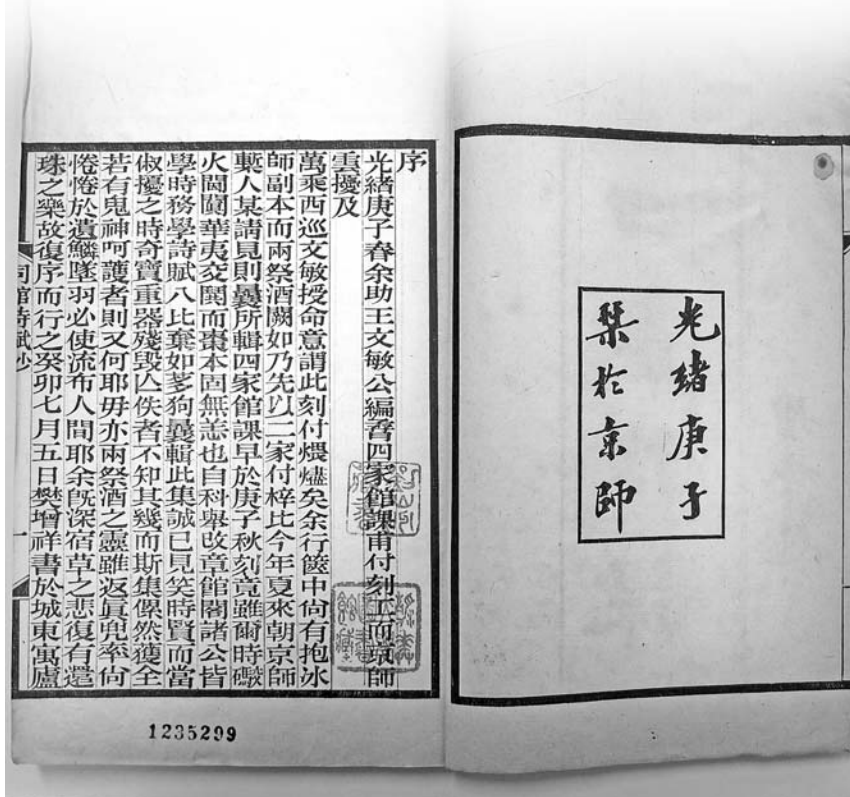 光緒庚子
栞於京師
序
光緒庚子春余助王文敏公編者四家館課甫付刻工而京師
雲擾及
萬乘西巡文敏授命意謂此刻付煨燼矣余行篋中尚有抱冰
師副本而兩祭酒闕如乃先以二家付梓比今年夏來朝京師
槧人某請見則曩所輯四家館課早於庚子秋刻竟雖爾時礮
火闐闐華夷交鬨而棗本固無恙也自科舉改章館閣諸公皆
學時務學詩賦八比棄如芻狗曩輯此集誠已見笑時賢而當
俶擾之時奇寶重器殘毀亾佚者不知其幾而斯集儽然獲全
若有鬼神呵護者則又何耶毋亦兩祭酒之靈雖返眞兜率尚
惓惓於遺鱗墜羽必使流布人間耶余旣深宿草之悲復有還
珠之樂故復序而行之癸卯七月五日樊增祥書於城東寓廬
司館詩賦鈔
一
1235299